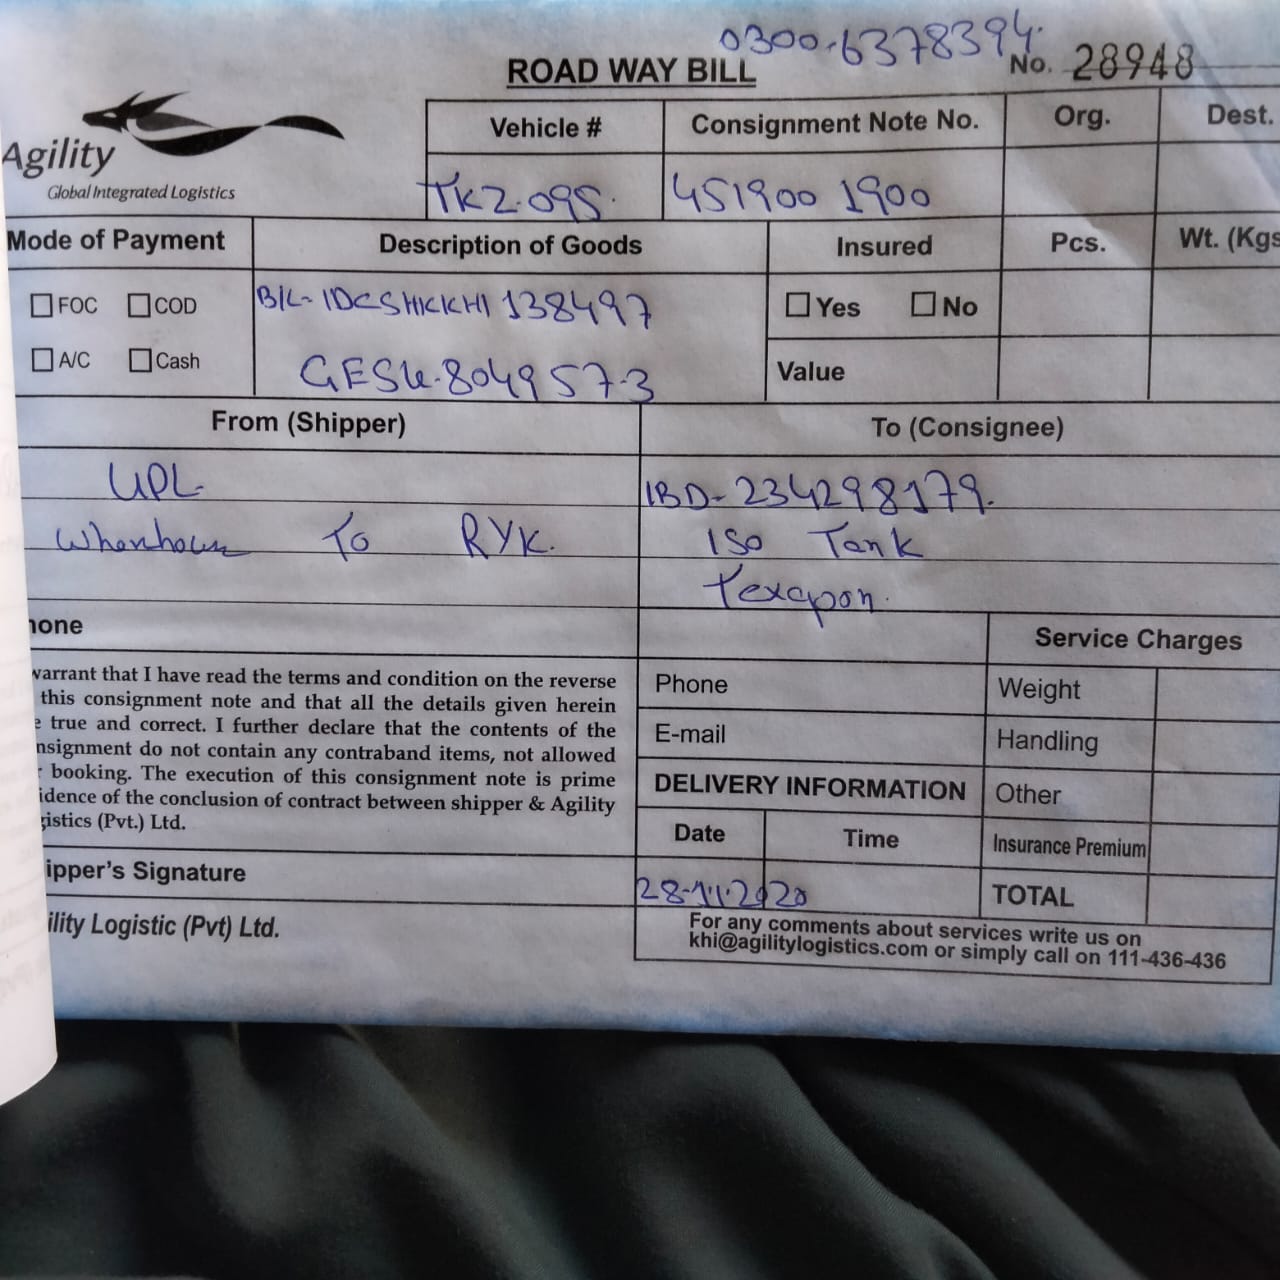 0300-6378394
ROAD WAY BILL
No. 28948
Agility
Global Integrated Logistics
Vehicle # Consignment Note No. Org. Dest.
TKZ-095. 451900 1900
Mode of Payment Description of Goods Insured Pcs. Wt. (Kgs
FOC COD B/L- 138497 Yes No
A/C Cash 804957-3 Value
From (Shipper) To (Consignee)
UPL IBD-234298179.
To RYK. ISO Tank
Texapon.
hone Service Charges
warrant that I have read the terms and condition on the reverse
this consignment note and that all the details given herein
e true and correct. I further declare that the contents of the
nsignment do not contain any contraband items, not allowed
r booking. The execution of this consignment note is prime
idence of the conclusion of contract between shipper & Agility
gistics (Pvt.) Ltd.
Phone Weight
E-mail Handling
DELIVERY INFORMATION Other
Date Time Insurance Premium
ipper's Signature 28-11-2020 TOTAL
ility Logistic (Pvt) Ltd.
For any comments about services write us on
khi@agilitylogistics.com or simply call on 111-436-436